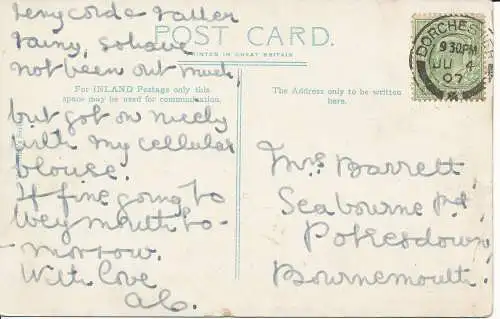 very cold & rather
rainy, so have
not been out much,
but got on nicely
with my cellular
blouse.
If fine going to
Weymouth to-
morrow.
With love
POST CARD.
PRINTED IN GREAT BRITAIN
For INLAND Postage only this
space may be used for communication.
The Address only to be written
here.
DORCHESTER
9 30PM
JU 4
07
Mrs Barrett
Seabourne Rd,
Pokesdown
Bournemouth.